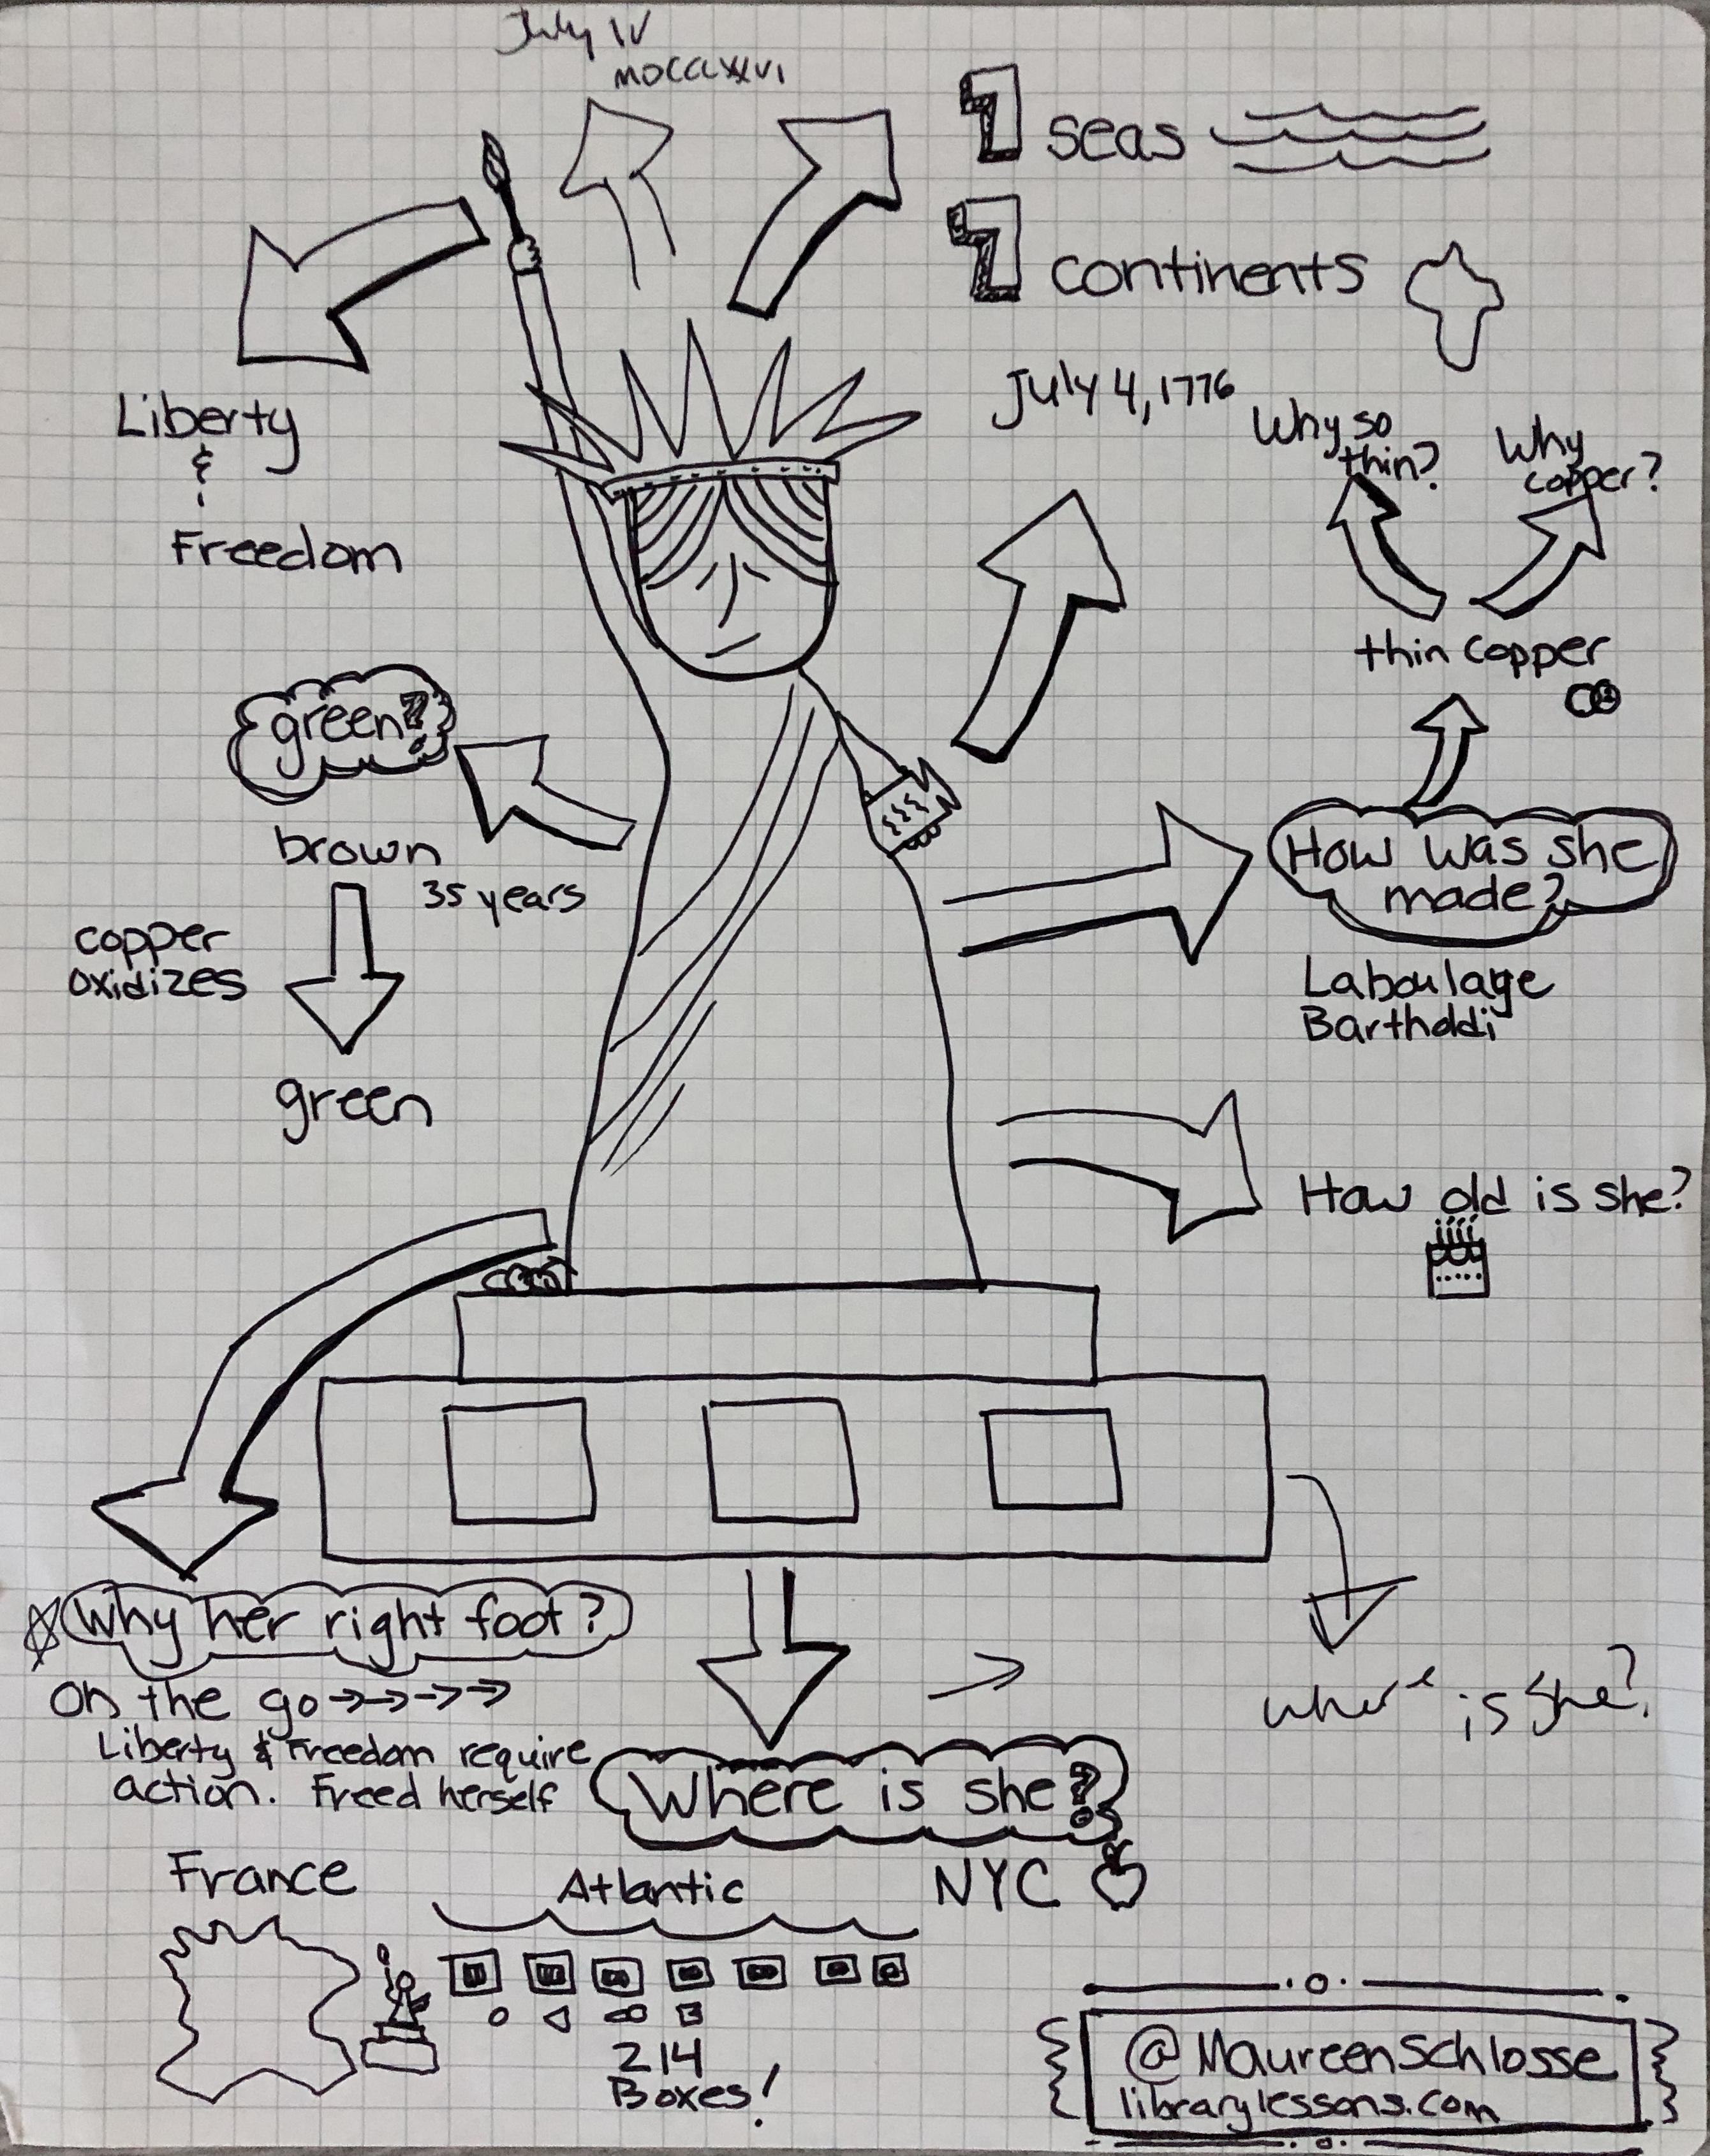 July IV
MDCCLXXVI
7 seas
7 continents
July 4, 1776
Why so
thin?
Why
copper?
Liberty
&
Freedom
thin copper
green?
brown
35 years
copper
oxidizes
green
How was she
made?
Laboulaye
Bartholdi
How old is she?
Why her right foot?
On the go
Liberty & Freedom require
action. Freed herself
where is she?
Where is she?
France
Atlantic
NYC
214
Boxes!
@MaureenSchlosse
librarylessons.com